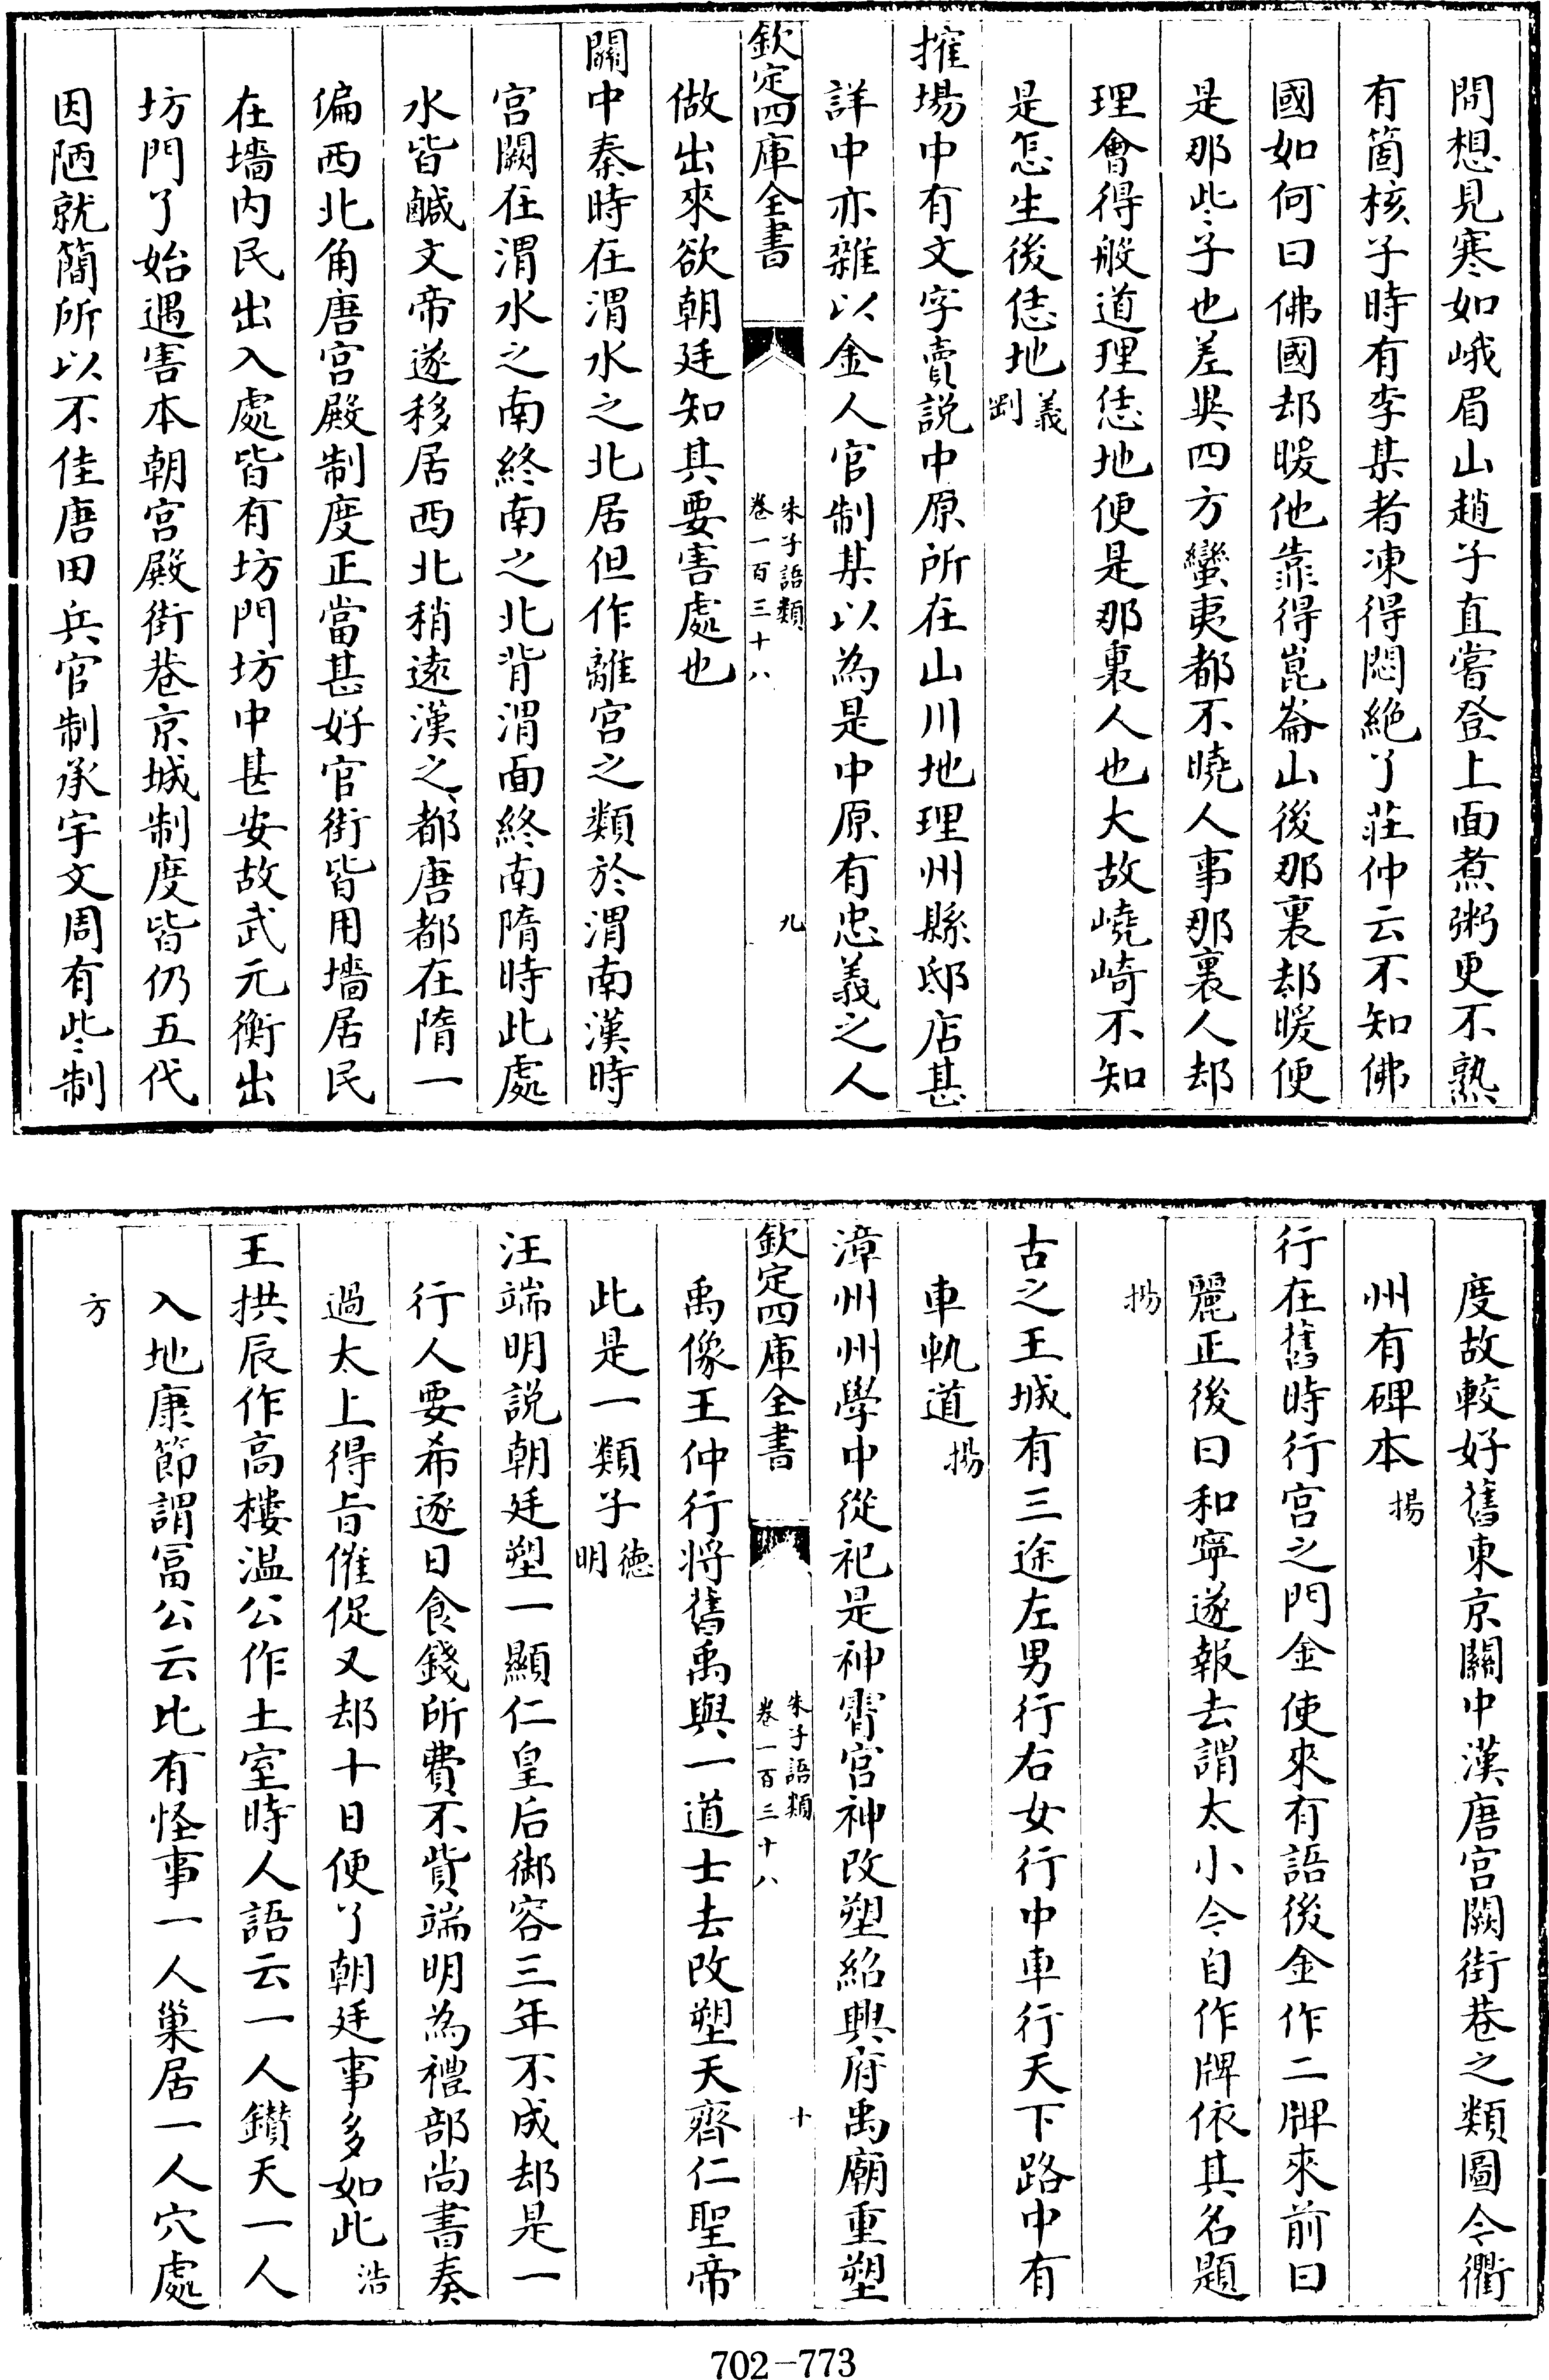 間想見寒如峨眉山趙子直嘗登上面煮粥更不熟
有箇核子時有李某者凍得悶絶了莊仲云不知佛
國如何曰佛國却暖他靠得崑崙山後那裏却暖便
是那些子也差與四方蠻夷都不曉人事那裏人却
理會得般道理恁地便是那裏人也大故嶢崎不知
是怎生後恁地義剛
搉場中有文字賣説中原所在山川地理州縣邸店甚
詳中亦雜以金人官制某以為是中原有忠義之人
欽定四庫全書
朱子語類
卷一百三十八
九
做出來欲朝廷知其要害處也
關中秦時在渭水之北居但作離宮之類於渭南漢時
宮闕在渭水之南終南之北背渭面終南隋時此處
水皆鹹文帝遂移居西北稍遠漢之都唐都在隋一
偏西北角唐宮殿制度正當甚好官街皆用墻居民
在墻内民出入處皆有坊門坊中甚安故武元衡出
坊門了始遇害本朝宮殿街巷京城制度皆仍五代
因陋就簡所以不佳唐田兵官制承宇文周有些制
度故較好舊東京關中漢唐宮闕街巷之類圖今衢
州有碑本揚
行在舊時行宮之門金使來有語後金作二牌來前曰
麗正後曰和寧遂報去謂太小今自作牌依其名題
揚
古之王城有三途左男行右女行中車行天下路中有
車軌道揚
漳州州學中從祀是神霄宮神改塑紹興府禹廟重塑
欽定四庫全書
朱子語類
卷一百三十八
十
禹像王仲行將舊禹與一道士去改塑天齊仁聖帝
此是一類子德明
汪端明説朝廷塑一顯仁皇后御容三年不成却是一
行人要希逐日食錢所費不貲端明為禮部尚書奏
過太上得旨催促又却十日便了朝廷事多如此浩
王拱辰作高樓温公作土室時人語云一人鑚天一人
入地康節謂富公云比有怪事一人巢居一人穴處
方
702-773